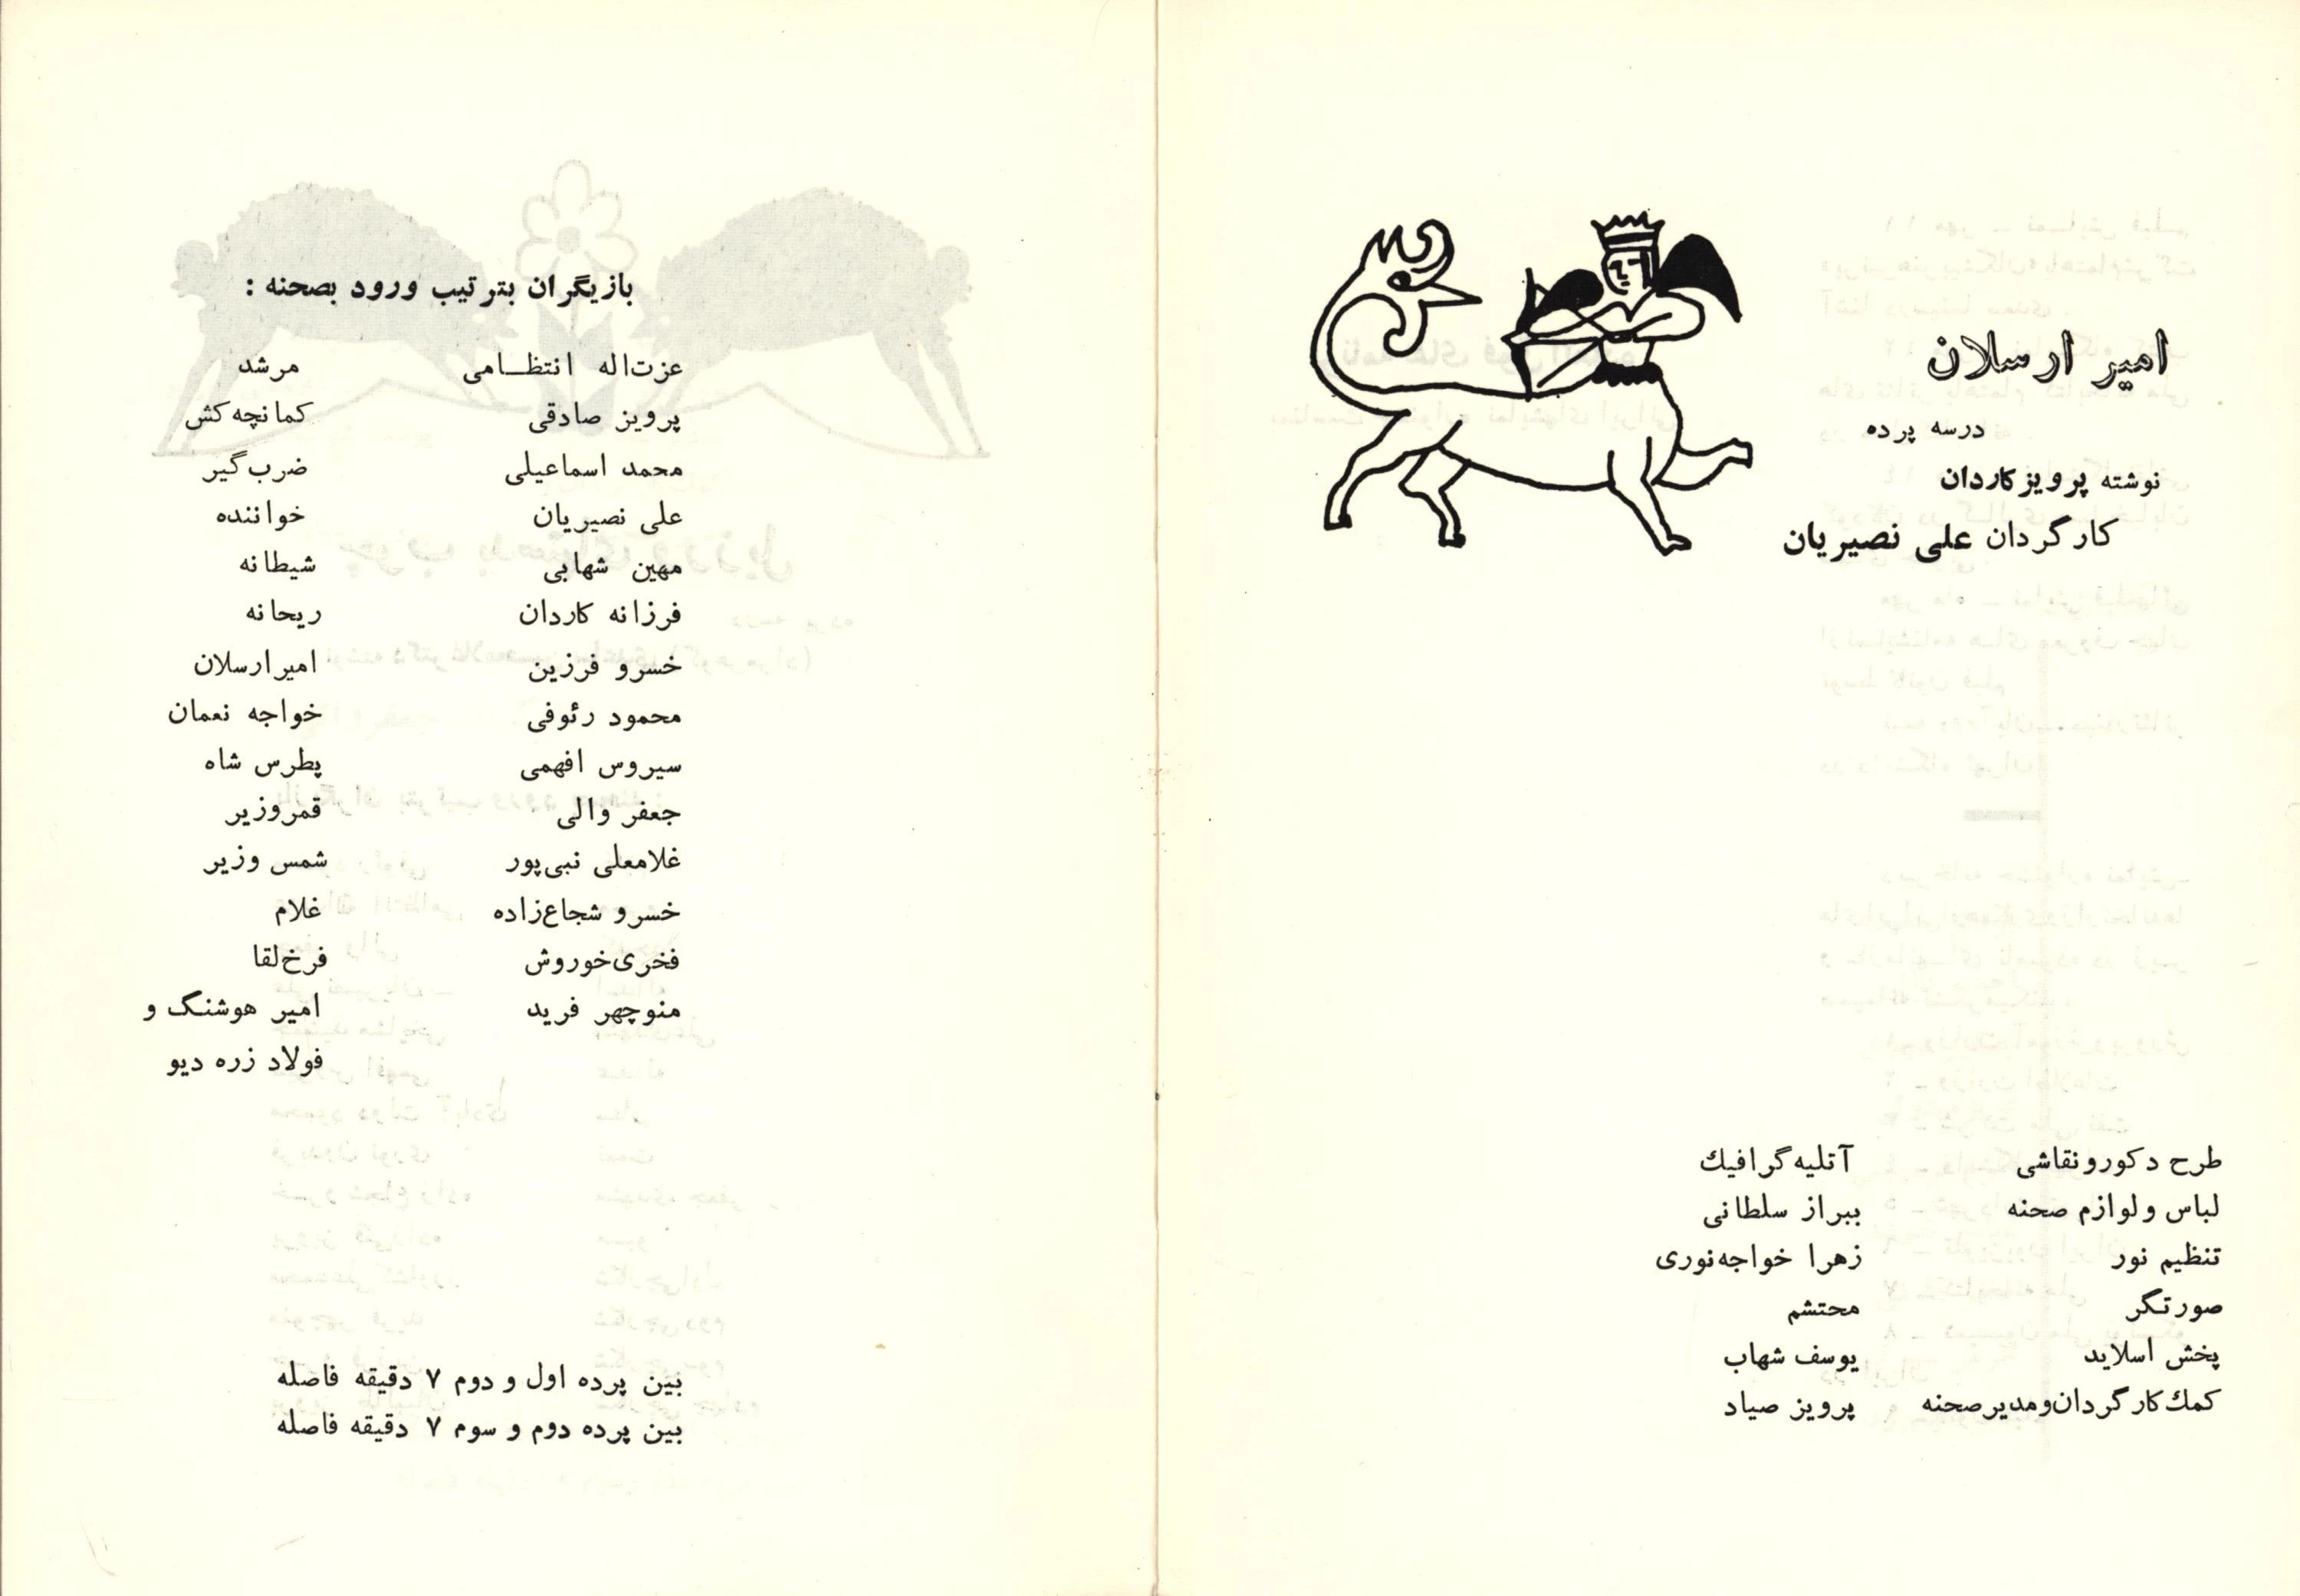 امیر ارسلان
درسه پرده
نوشته پرویز کاردان
کارگردان علی نصیریان
طرح دکورو نقاشی آتلیه گرافیك
لباس و لوازم صحنه ببراز سلطانی
تنظیم نور زهرا خواجه نوری
صورتگر محتشم
پخش اسلاید یوسف شهاب
کمك کارگردان و مدیر صحنه پرویز صیاد
بازیگران بترتیب ورود بصحنه :
عزت اله انتظامی مرشد
پرویز صادقی کمانچه کش
محمد اسماعیلی ضرب گیر
علی نصیریان خواننده
مهین شهابی شیطانه
فرزانه کاردان ریحانه
خسرو فرزین امیرارسلان
محمود رئوفی خواجه نعمان
سیروس افهمی پطرس شاه
جعفر والی قمروزیر
غلامعلی نبی پور شمس وزیر
خسرو شجاع زاده غلام
فخری خوروش فرخ لقا
منوچهر فرید امیر هوشنگ و
فولاد زره دیو
بین پرده اول و دوم ۷ دقیقه فاصله
بین پرده دوم و سوم ۷ دقیقه فاصله